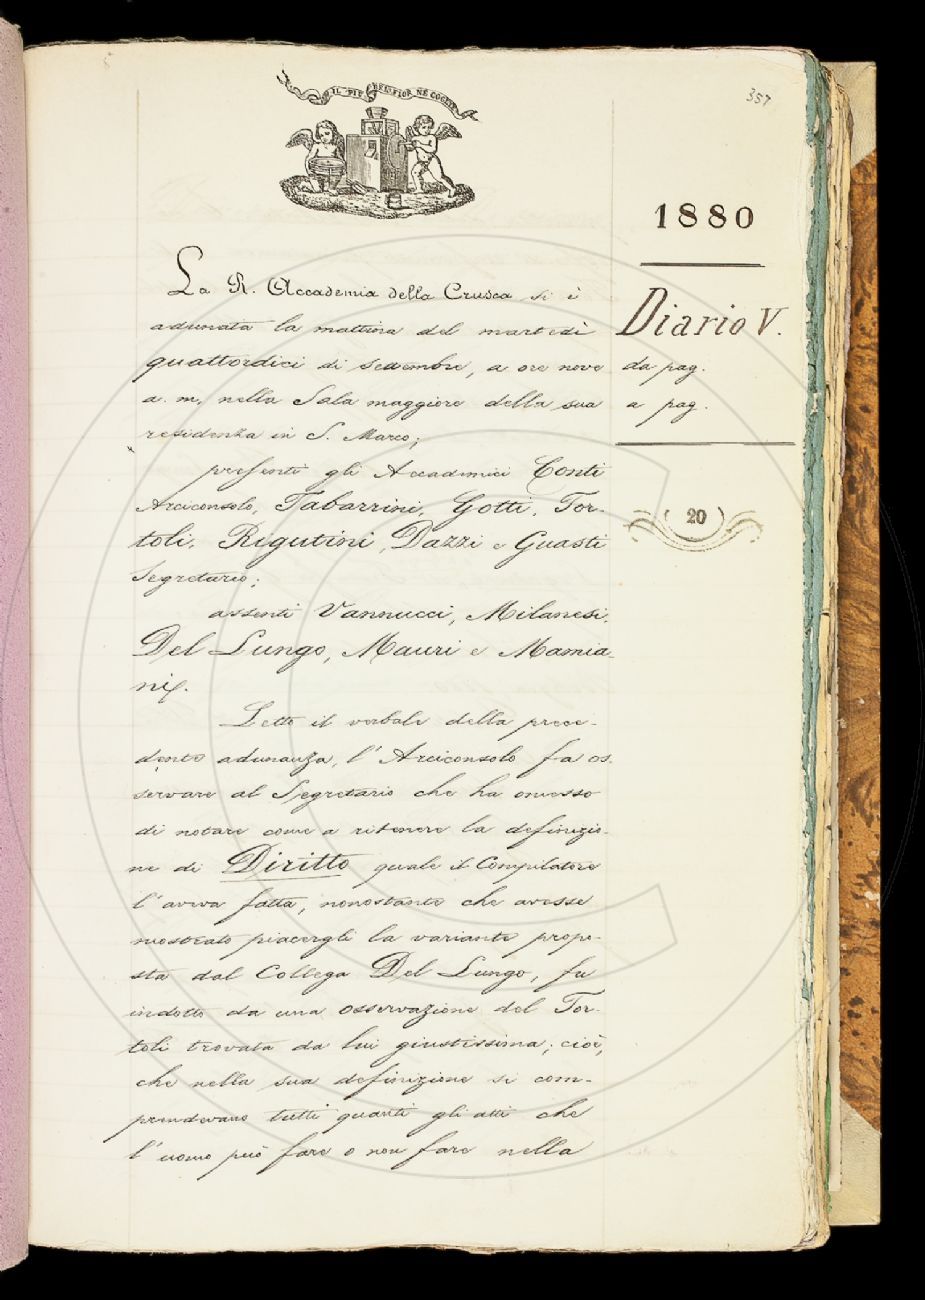 IL PIÙ BEL FIOR NE COGLIE
357
1880
Diario V.
da pag.
a pag.
20
La R. Accademia della Crusca si è
adunata la mattina del martedì
quattordici di settembre, a ore nove
a. m. nella Sala maggiore della sua
residenza in S. Marco;
presenti gli Accademici Conti
Arciconsolo, Tabarrini, Gotti, Tor-
toli, Rigutini, Dazzi e Guasti
Segretario;
assenti Vannucci, Milanesi,
Del Lungo, Mauri e Mamia-
ni.
Letto il verbale della prece-
dente adunanza, l'Arciconsolo fa os-
servare al Segretario che ha omesso
di notare come a ritenere la definizio-
ne di Diritto quale il Compilatore
l'aveva fatta, nonostante che avesse
mostrato piacergli la variante propo-
sta dal Collega Del Lungo, fu
indotto da una osservazione del Tor-
toli trovata da lui giustissima; cioè,
che nella sua definizione si com-
prendevano tutti quanti gli atti che
l'uomo può fare o non fare nella